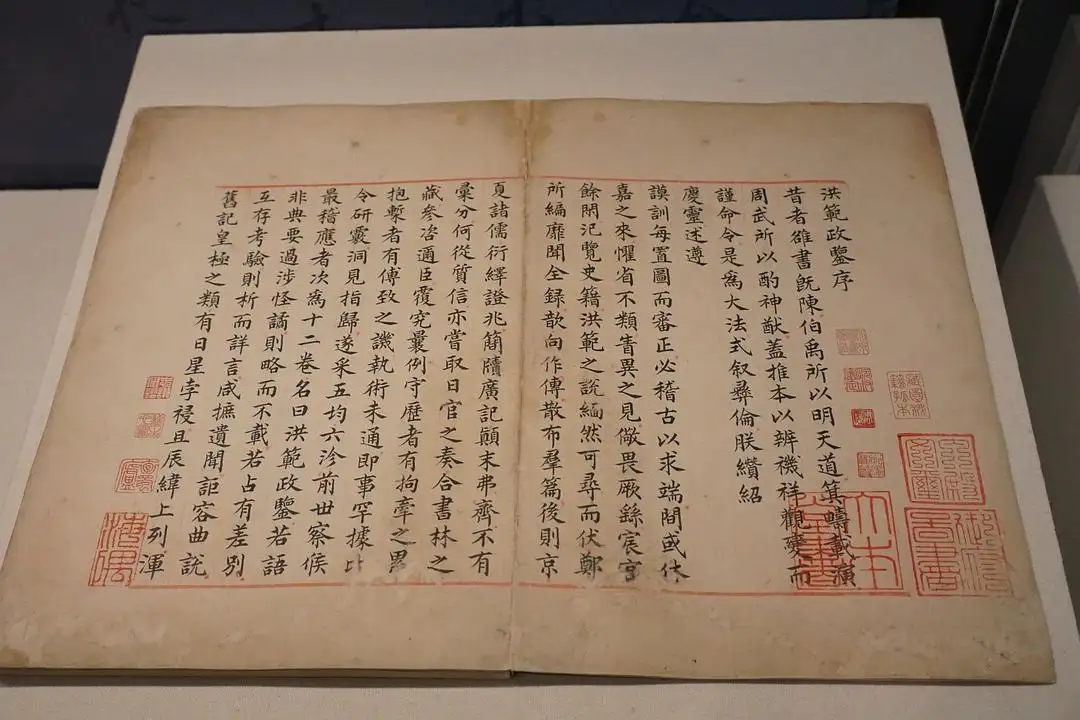 洪範政鑒序
昔者雒書旣陳伯禹所以明天道箕疇載演
周武所以酌神猷蓋推本以辨禨祥觀變而
謹命令是爲大法式叙彝倫朕纘紹
慶靈述遵
謨訓每置圖而審正必稽古以求端間或休
嘉之來懼省不類眚異之見儆畏厥繇宸宮
餘閒氾覽史籍洪範之說緬然可尋而伏鄭
所編靡聞全録歆向作傳散布羣篇後則京
夏諸儒衍繹證兆簡牘廣記顛末弗齊不有
彙分何從質信亦嘗取日官之奏合書林之
藏參咨邇臣覆究曩例守歷者有拘牽之累
抱槧者有傳致之譏執術未通即事罕據比
令研覈洞見指歸遂采五均六沴前世察候
最稽應者次爲十二卷名曰洪範政鑒若語
非典要過涉怪譎則略而不載若占有差別
互存考驗則析而詳言咸摭遺聞詎容曲說
舊記皇極之類有日星孛祲且辰緯上列渾